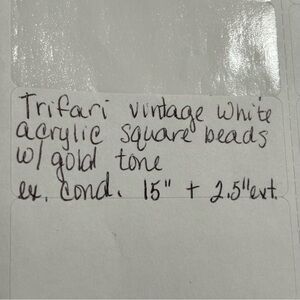 Trifari vintage white
acrylic square beads
w/ gold tone
ex. cond. 15" + 2.5" ext.